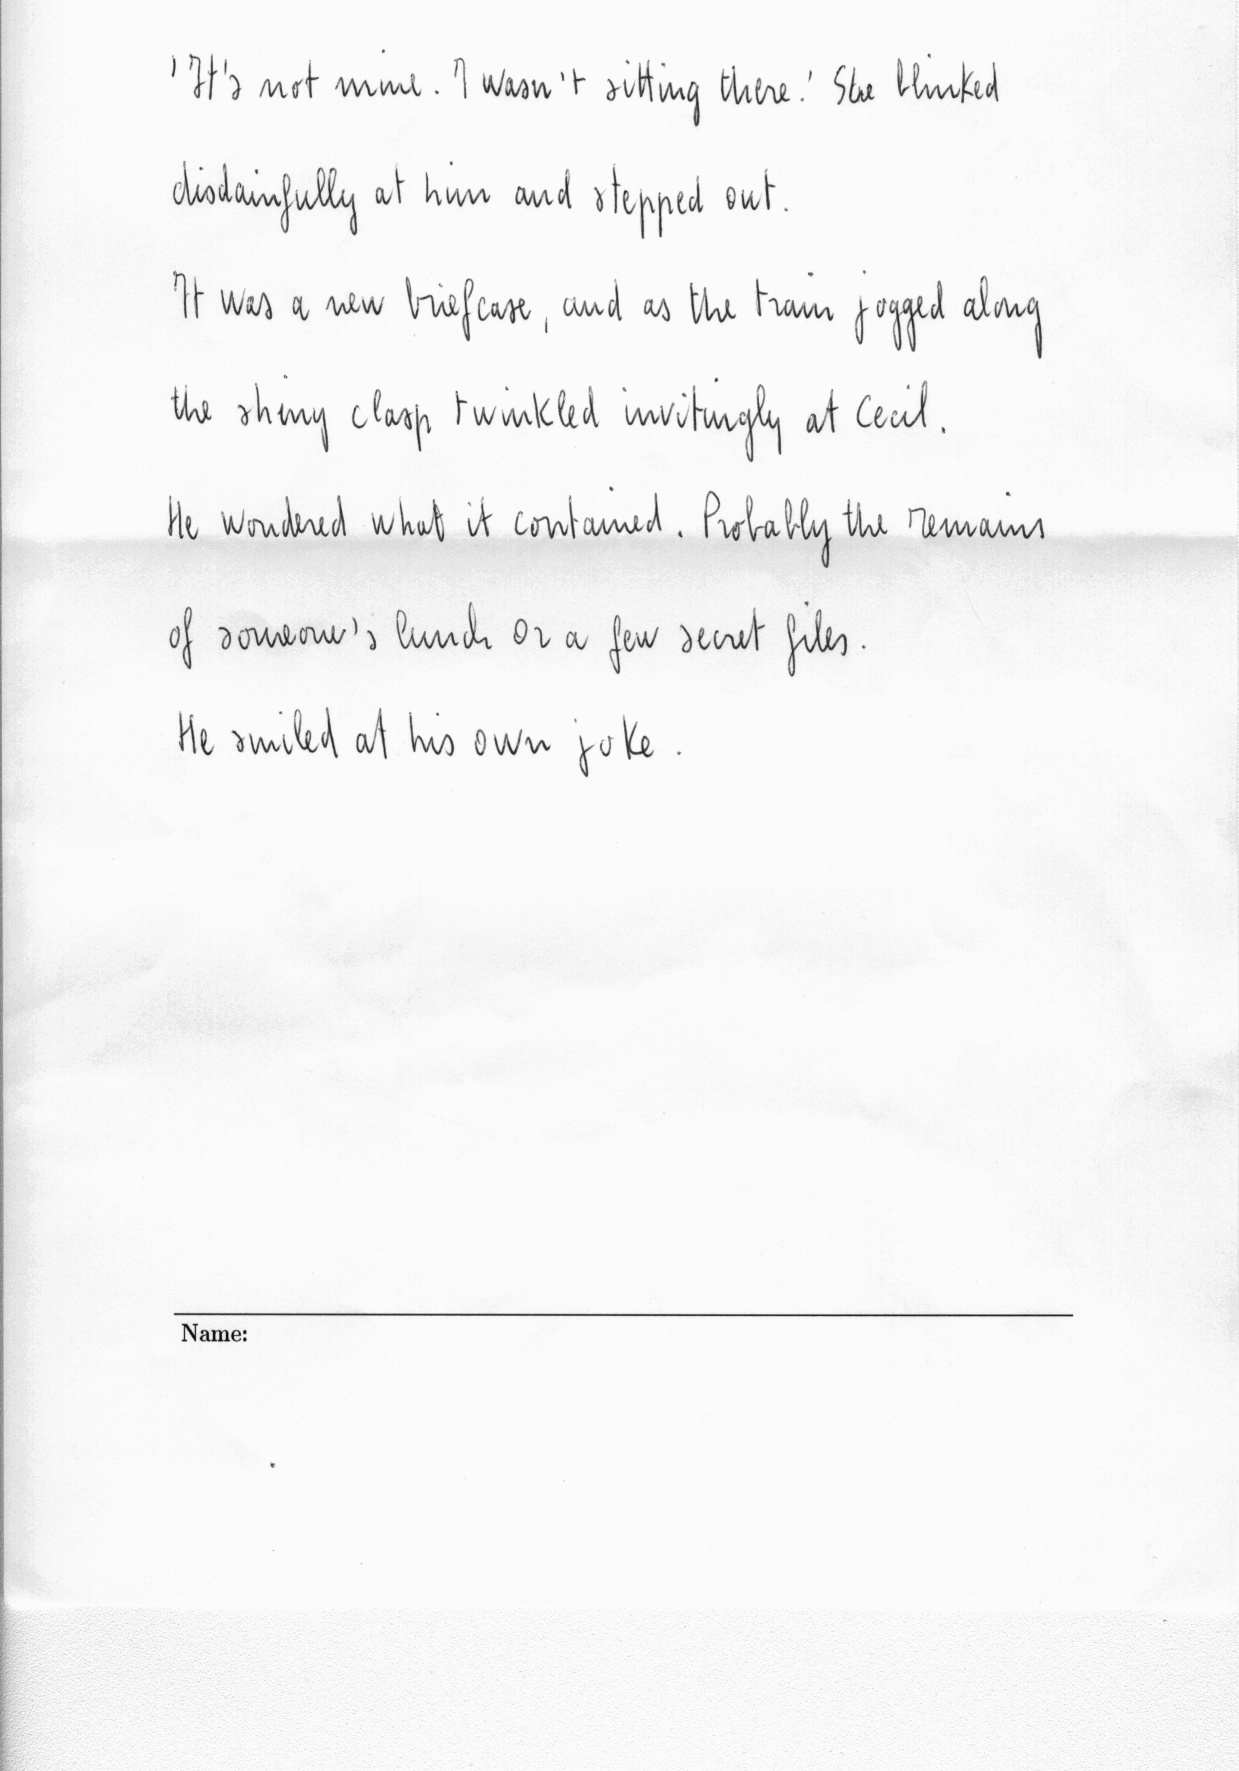 'It's not mine. I wasn't sitting there.' She blinked
disdainfully at him and stepped out.
It was a new briefcase, and as the train jogged along
the shiny clasp twinkled invitingly at Cecil.
He wondered what it contained. Probably the remains
of someone's lunch or a few secret files.
He smiled at his own joke.
Name: